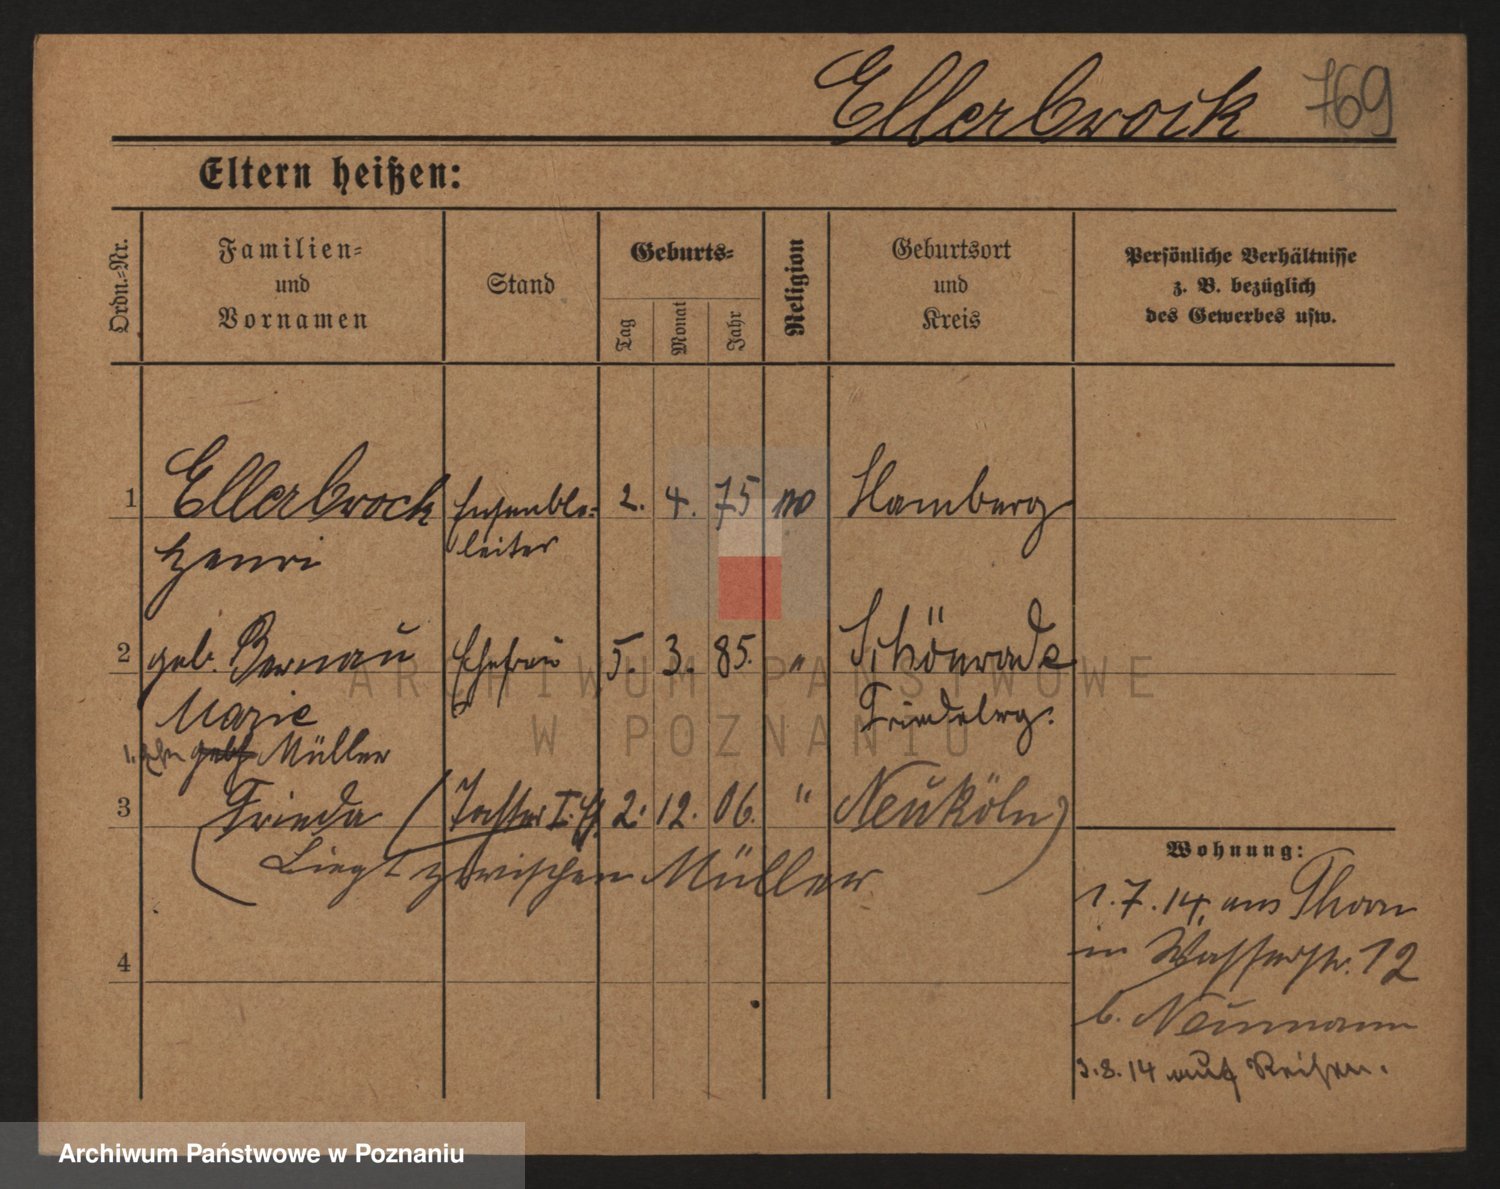 Ellerbrock 769
Eltern heißen:
Ordn.-Nr.
Familien-
und
Vornamen
Stand
Geburts-
Tag
Monat
Jahr
Religion
Geburtsort
und
Kreis
Persönliche Verhältnisse
z. B. bezüglich
des Gewerbes usw.
1 Ellerbrock Ensemble- 2. 4. 75 Hamburg
Henri leiter
2 geb. Bernau Ehefrau 5. 3. 85. " Schönrade
Marie Friedebrg.
Müller
3 Frieda (Tochter I. E. 2. 12. 06. " Neuköln)
(Liegt zwischen Müller
Wohnung:
1.7.14. aus Thorn
in Wasserstr. 12
b. Neumann
3.8.14 auf Reisen.
4
ARCHIWUM PAŃSTWOWE
W POZNANIU
Archiwum Państwowe w Poznaniu